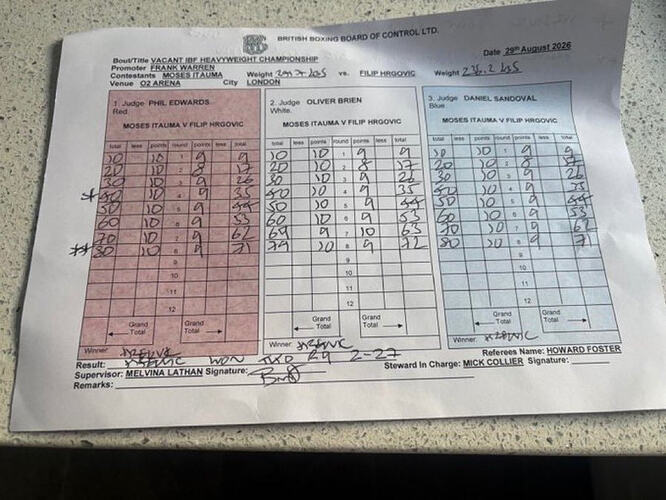 BRITISH BOXING BOARD OF CONTROL LTD.
Date 29th August 2026
Bout/Title VACANT IBF HEAVYWEIGHT CHAMPIONSHIP
Promoter FRANK WARREN
Contestants MOSES ITAUMA Weight lbs vs. FILIP HRGOVIC Weight 236.2 lbs
Venue O2 ARENA City LONDON
1. Judge PHIL EDWARDS
Red.
MOSES ITAUMA V FILIP HRGOVIC
total less points round points less total
10 10 1 9 9
20 10 2 8 17
30 10 3 9 26
*40 10 4 9 35
50 10 5 9 44
60 10 6 9 53
70 10 7 9 62
**80 10 8 9 71
9
10
11
12
Grand Total Grand Total
Winner: HRGOVIC
2. Judge OLIVER BRIEN
White.
MOSES ITAUMA V FILIP HRGOVIC
total less points round points less total
10 10 1 9 9
20 10 2 8 17
30 10 3 9 26
40 10 4 9 35
50 10 5 9 44
60 10 6 9 53
69 9 7 10 63
79 10 8 9 72
9
10
11
12
Grand Total Grand Total
Winner: HRGOVIC
3. Judge DANIEL SANDOVAL
Blue.
MOSES ITAUMA V FILIP HRGOVIC
total less points round points less total
10 10 1 9 9
20 10 2 8 17
30 10 3 9 26
40 10 4 9 35
50 10 5 9 44
60 10 6 9 53
70 10 7 9 62
80 10 8 9 71
9
10
11
12
Grand Total Grand Total
Winner: HRGOVIC
Result: HRGOVIC WON TKO R9 2-27
Referees Name: HOWARD FOSTER
Supervisor: MELVINA LATHAN Signature: Steward In Charge: MICK COLLIER Signature:
Remarks: